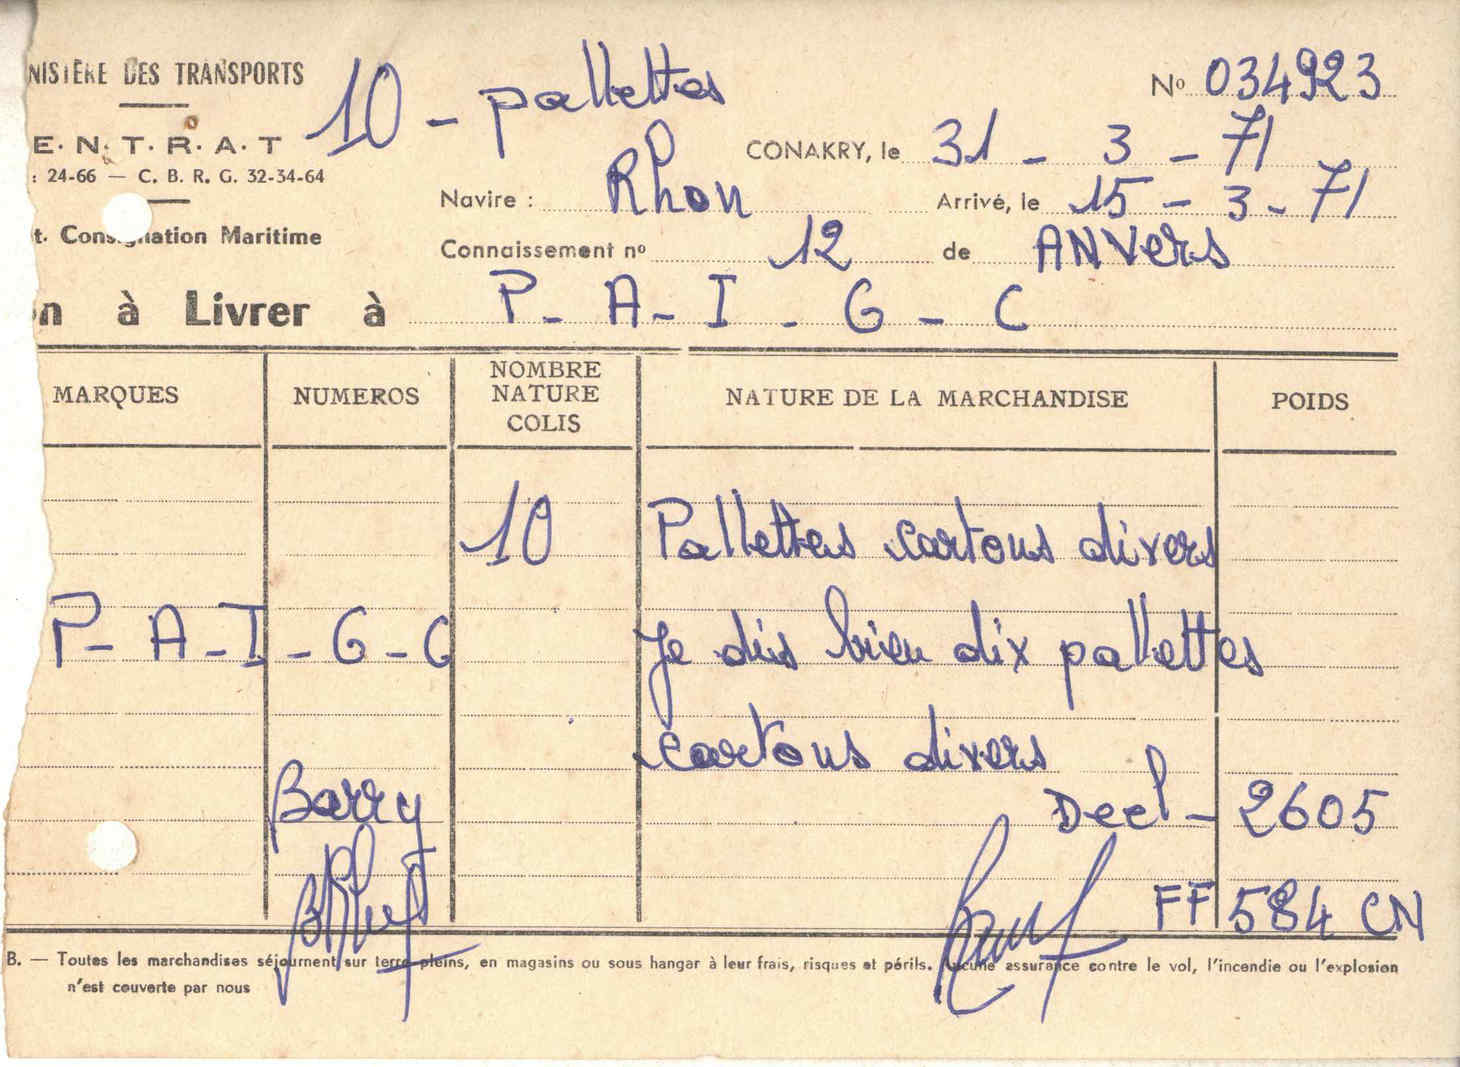 NISTÈRE DES TRANSPORTS
10 - pallettes
N° 034923
E. N. T. R. A. T
CONAKRY, le 31 - 3 - 71
: 24-66 — C. B. R. G. 32-34-64
Navire : Rhon
Arrivé, le 15 - 3 - 71
t. Consignation Maritime
Connaissement n° 12 de ANVers
n à Livrer à P - A - I - G - C
MARQUES NUMEROS NOMBRE NATURE COLIS NATURE DE LA MARCHANDISE POIDS
10 Pallettes cartons divers
P - A - I - G - C Je dis bien dix pallettes
cartons divers
Barry
Decl - 2605
FF 584 CN
B. — Toutes les marchandises séjournent sur terre-pleins, en magasins ou sous hangar à leur frais, risques et périls. Aucune assurance contre le vol, l'incendie ou l'explosion
n'est couverte par nous